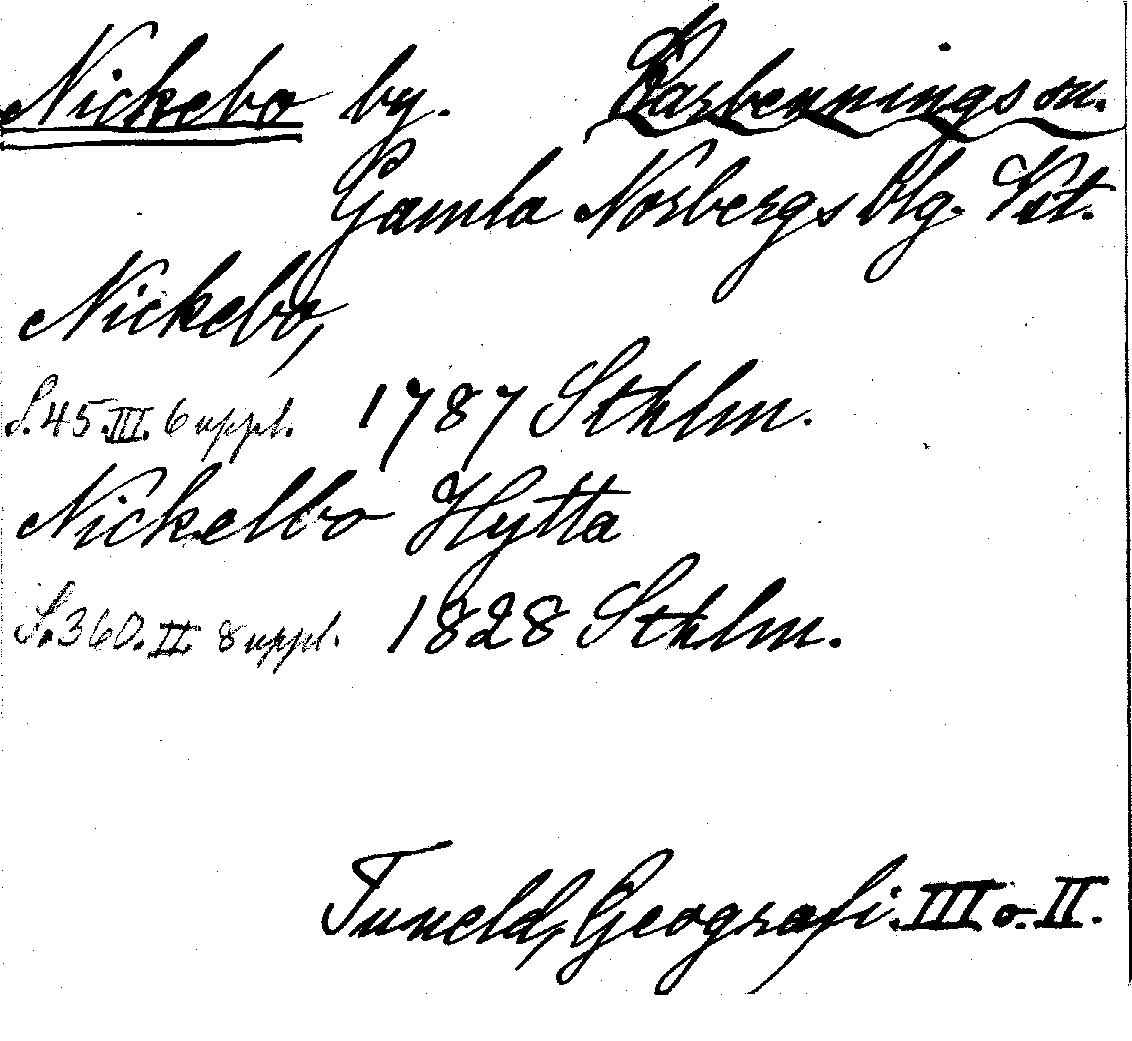 Nickebo by. Karbennings sn.
Gamla Norbergs blg. Vst.
Nickebo,
S. 45. III. 6 uppl. 1787 Sthlm.
Nickelbo Hytta
S. 360. II. 8 uppl. 1828 Sthlm.
Tuneld, Geografi. III o. II.